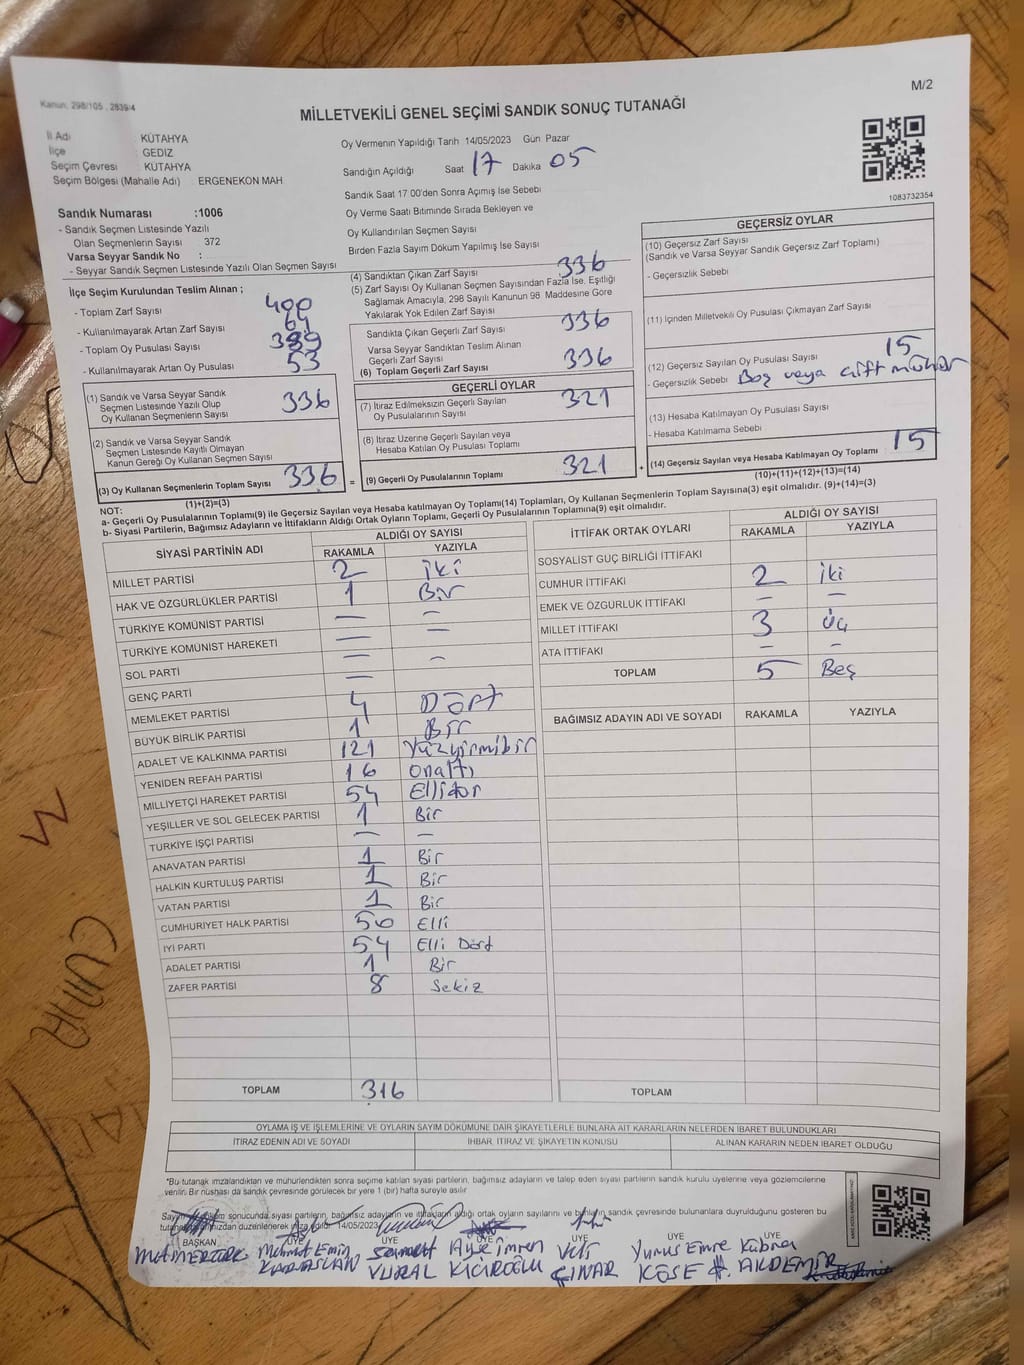 Kanun: 298/105 , 2839/4
M/2
MİLLETVEKİLİ GENEL SEÇİMİ SANDIK SONUÇ TUTANAĞI
İl Adı : KÜTAHYA
İlçe : GEDİZ
Seçim Çevresi : KÜTAHYA
Seçim Bölgesi (Mahalle Adı) : ERGENEKON MAH
Sandık Numarası :1006
- Sandık Seçmen Listesinde Yazılı
Olan Seçmenlerin Sayısı 372
Varsa Seyyar Sandık No :
- Seyyar Sandık Seçmen Listesinde Yazılı Olan Seçmen Sayısı
Oy Vermenin Yapıldığı Tarih 14/05/2023 Gün Pazar
Sandığın Açıldığı Saat 17 Dakika 05
Sandık Saat 17.00'den Sonra Açımış İse Sebebi
Oy Verme Saati Bitiminde Sırada Bekleyen ve
Oy Kullandırılan Seçmen Sayısı
Birden Fazla Sayım Döküm Yapılmış İse Sayısı
1083732354
İlçe Seçim Kurulundan Teslim Alınan ;
- Toplam Zarf Sayısı 400
- Kullanılmayarak Artan Zarf Sayısı 64
- Toplam Oy Pusulası Sayısı 389
- Kullanılmayarak Artan Oy Pusulası 53
(1) Sandık ve Varsa Seyyar Sandık
Seçmen Listesinde Yazılı Olup
Oy Kullanan Seçmenlerin Sayısı 336
(2) Sandık ve Varsa Seyyar Sandık
Seçmen Listesinde Kayıtlı Olmayan
Kanun Gereği Oy Kullanan Seçmen Sayısı
(3) Oy Kullanan Seçmenlerin Toplam Sayısı 336
(1)+(2)=(3)
(4) Sandıktan Çıkan Zarf Sayısı 336
(5) Zarf Sayısı Oy Kullanan Seçmen Sayısından Fazla İse, Eşitliği
Sağlamak Amacıyla, 298 Sayılı Kanunun 98. Maddesine Göre
Yakılarak Yok Edilen Zarf Sayısı
Sandıkta Çıkan Geçerli Zarf Sayısı 336
Varsa Seyyar Sandıktan Teslim Alınan
Geçerli Zarf Sayısı
(6) Toplam Geçerli Zarf Sayısı 336
GEÇERLİ OYLAR
(7) İtiraz Edilmeksizin Geçerli Sayılan
Oy Pusulalarının Sayısı 321
(8) İtiraz Üzerine Geçerli Sayılan veya
Hesaba Katılan Oy Pusulası Toplamı
= (9) Geçerli Oy Pusulalarının Toplamı 321
GEÇERSİZ OYLAR
(10) Geçersiz Zarf Sayısı
(Sandık ve Varsa Seyyar Sandık Geçersiz Zarf Toplamı)
- Geçersizlik Sebebi
(11) İçinden Milletvekili Oy Pusulası Çıkmayan Zarf Sayısı
(12) Geçersiz Sayılan Oy Pusulası Sayısı 15
- Geçersizlik Sebebi Boş veya çift mühür
(13) Hesaba Katılmayan Oy Pusulası Sayısı
- Hesaba Katılmama Sebebi
+ (14) Geçersiz Sayılan veya Hesaba Katılmayan Oy Toplamı 15
(10)+(11)+(12)+(13)=(14)
NOT:
a- Geçerli Oy Pusulalarının Toplamı(9) ile Geçersiz Sayılan veya Hesaba katılmayan Oy Toplamı(14) Toplamları, Oy Kullanan Seçmenlerin Toplam Sayısına(3) eşit olmalıdır. (9)+(14)=(3)
b- Siyasi Partilerin, Bağımsız Adayların ve İttifakların Aldığı Ortak Oyların Toplamı, Geçerli Oy Pusulalarının Toplamına(9) eşit olmalıdır.
SİYASİ PARTİNİN ADI ALDIĞI OY SAYISI
RAKAMLA YAZIYLA
MİLLET PARTİSİ 2 iki
HAK VE ÖZGÜRLÜKLER PARTİSİ 1 Bir
TÜRKİYE KOMÜNİST PARTİSİ — —
TÜRKİYE KOMÜNİST HAREKETİ — —
SOL PARTİ — —
GENÇ PARTİ —
MEMLEKET PARTİSİ 4 Dört
BÜYÜK BİRLİK PARTİSİ 1 Bir
ADALET VE KALKINMA PARTİSİ 121 Yüzyirmibir
YENİDEN REFAH PARTİSİ 16 Onaltı
MİLLİYETÇİ HAREKET PARTİSİ 54 Ellidör
YEŞİLLER VE SOL GELECEK PARTİSİ 1 Bir
TÜRKİYE İŞÇİ PARTİSİ — —
ANAVATAN PARTİSİ 1 Bir
HALKIN KURTULUŞ PARTİSİ 1 Bir
VATAN PARTİSİ 1 Bir
CUMHURİYET HALK PARTİSİ 50 Elli
İYİ PARTİ 54 Elli Dört
ADALET PARTİSİ 1 Bir
ZAFER PARTİSİ 8 Sekiz
TOPLAM 316
İTTİFAK ORTAK OYLARI ALDIĞI OY SAYISI
RAKAMLA YAZIYLA
SOSYALİST GÜÇ BİRLİĞİ İTTİFAKI
CUMHUR İTTİFAKI 2 iki
EMEK VE ÖZGÜRLÜK İTTİFAKI — —
MİLLET İTTİFAKI 3 üç
ATA İTTİFAKI — —
TOPLAM 5 Beş
BAĞIMSIZ ADAYIN ADI VE SOYADI RAKAMLA YAZIYLA
TOPLAM
OYLAMA İŞ VE İŞLEMLERİNE VE OYLARIN SAYIM DÖKÜMÜNE DAİR ŞİKAYETLERLE BUNLARA AİT KARARLARIN NELERDEN İBARET BULUNDUKLARI
İTİRAZ EDENİN ADI VE SOYADI İHBAR, İTİRAZ VE ŞİKAYETİN KONUSU ALINAN KARARIN NEDEN İBARET OLDUĞU
*Bu tutanak imzalandıktan ve mühürlendikten sonra seçime katılan siyasi partilerin, bağımsız adayların ve talep eden siyasi partilerin sandık kurulu üyelerine veya gözlemcilerine
verilir. Bir nüshası da sandık çevresinde görülecek bir yere 1 (bir) hafta süreyle asılır
sonucunda siyasi partilerin, bağımsız adayların ve ittifakların aldığı ortak oyların sayılarını ve sandık çevresinde bulunanlara duyrulduğunu gösteren bu
14/05/2023
BAŞKAN ÜYE ÜYE ÜYE ÜYE ÜYE ÜYE
Mehmet Emin Ayşe imren Yunus Emre Kübra
KARASLAN VURAL KİCİROĞLU ÇINAR KÖSE AKDEMİR